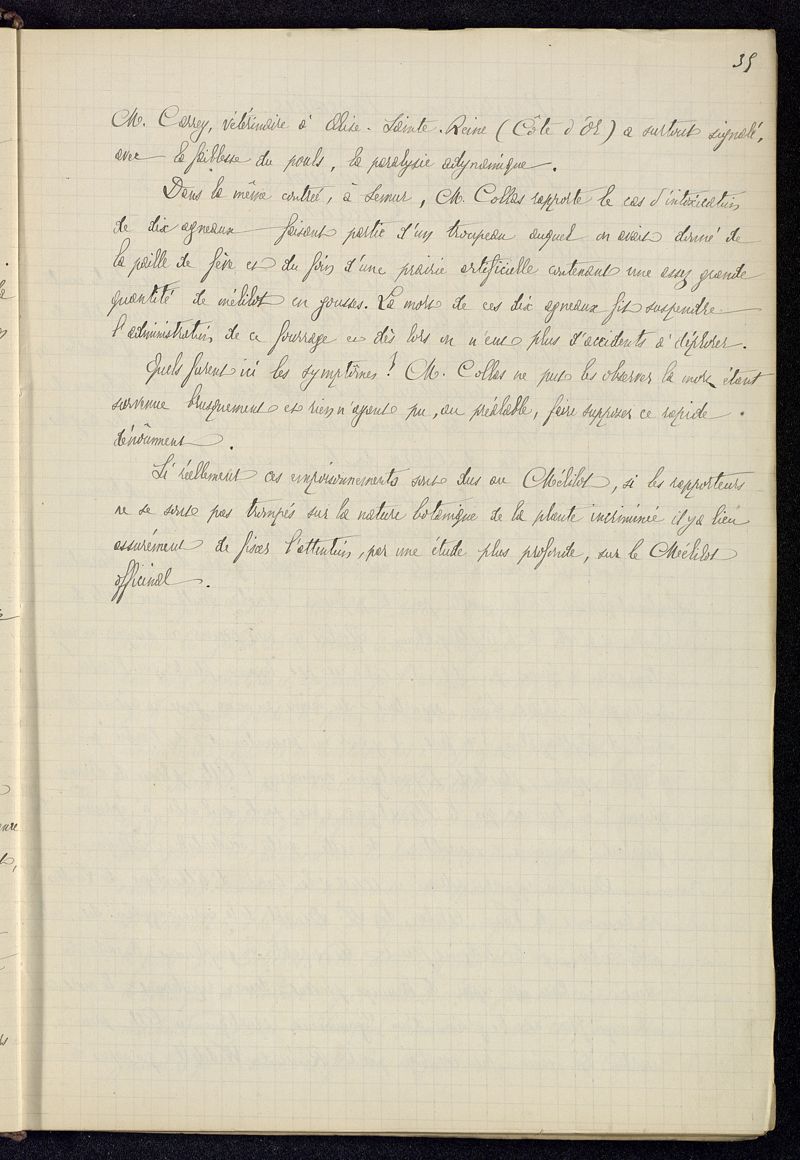 39
M. Carrey, vétérinaire à Alise-Sainte-Reine (Côte d'Or) a surtout signalé,
avec la faiblesse du pouls, la paralysie adynamique.
Dans la même contrée, à Semur, M. Collas rapporte le cas d'intoxication
de dix agneaux faisant partie d'un troupeau auquel on avait donné de
la paille de fève et du foin d'une prairie artificielle contenant une assez grande
quantité de mélilot en gousses. La mort de ces dix agneaux fit suspendre
l'administration de ce fourrage et dès lors on n'eut plus d'accidents à déplorer.
Quels furent ici les symptômes? M. Collas ne put les observer la mort étant
survenue brusquement et rien n'ayant pu, au préalable, faire supposer ce rapide
dénoûment.
Si réellement ces empoisonnements sont dus au Mélilot, si les rapporteurs
ne se sont pas trompés sur la nature botanique de la plante incriminée il y a lieu
assurément de fixer l'attention, par une étude plus profonde, sur le Mélilot
officinal.